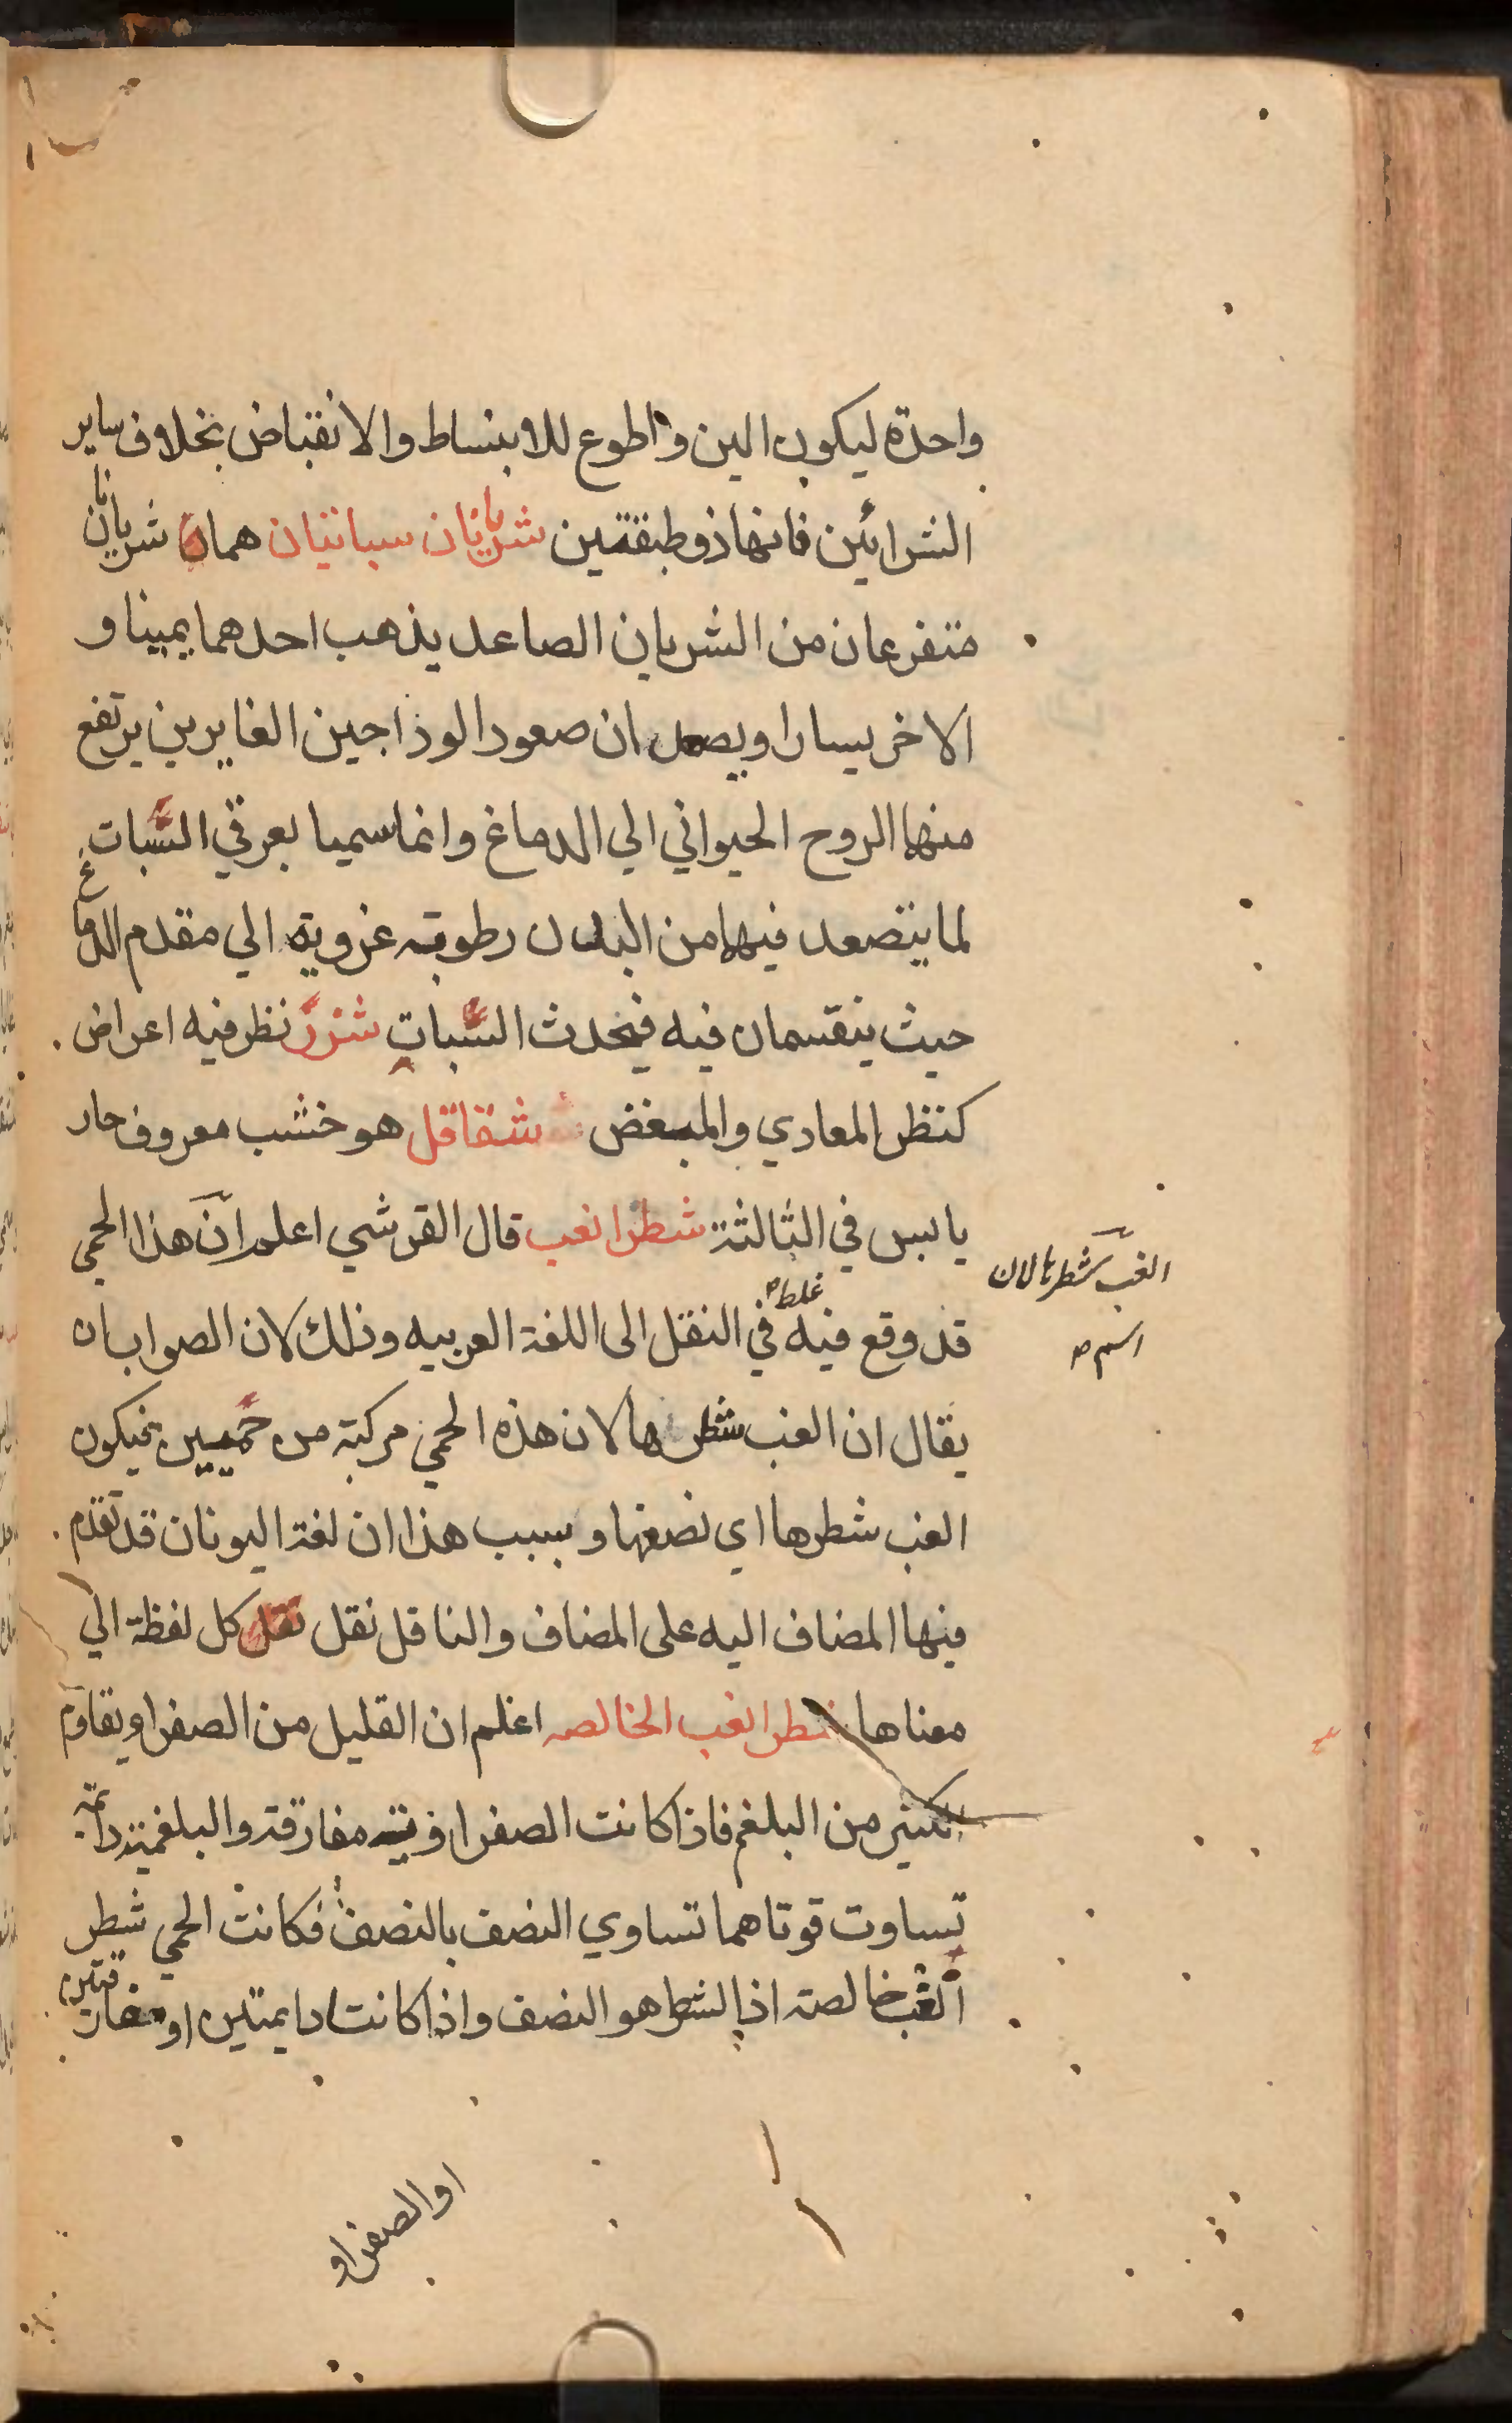 واحدة ليكون الين واطوع للانبساط والانقباض بخلاف ساير
الشرائين فانها ذو طبقتين شريانان سباتيان هما شريانان
متفرعان من الشريان الصاعد يذهب احدهما يمينا و
الاخر يسارا ويصعدان صعود الوذاجين الغايرين يرتفع
منها الروح الحيواني الي الدماغ وانما سميا بعرقي السُّبات
لما يتصعد فيها من البدن رطوبته غزويه الي مقدم الدماغ
حيث ينقسمان فيه فيحدث السُّبات شزرٌ نظر فيه اعراض
كنظر المعادي والمبغض شقاقل هو خشب معروف حار
يابس في الثالثة شطر الغب قال القرشي اعلم انّ هذا الحمي
قد وقع فيه غلط في النقل الى اللغة العربيه وذلك لان الصواب ان
يقال ان الغب شطرها لان هذه الحمي مركبة من حميين فيكون
الغب شطرها اي نصفها وسبب هذا ان لغة اليونان قد تقدم
فيها المضاف اليه على المضاف والناقل نقل كل لفظة الي
معناها شطر الغب الخالصه اعلم ان القليل من الصفراو يقاوم
الكثير من البلغم فاذا كانت الصفراويته مفارقة والبلغميته دائمة
تساوت قوتاهما تساوي النصف بالنصف فكانت الحمي شطر
الغب خالصته اذ الشطر هو النصف واذا كانتا دايمتين او مفارقتين
او الصفراو
الغبّ شطرها لان
اسم